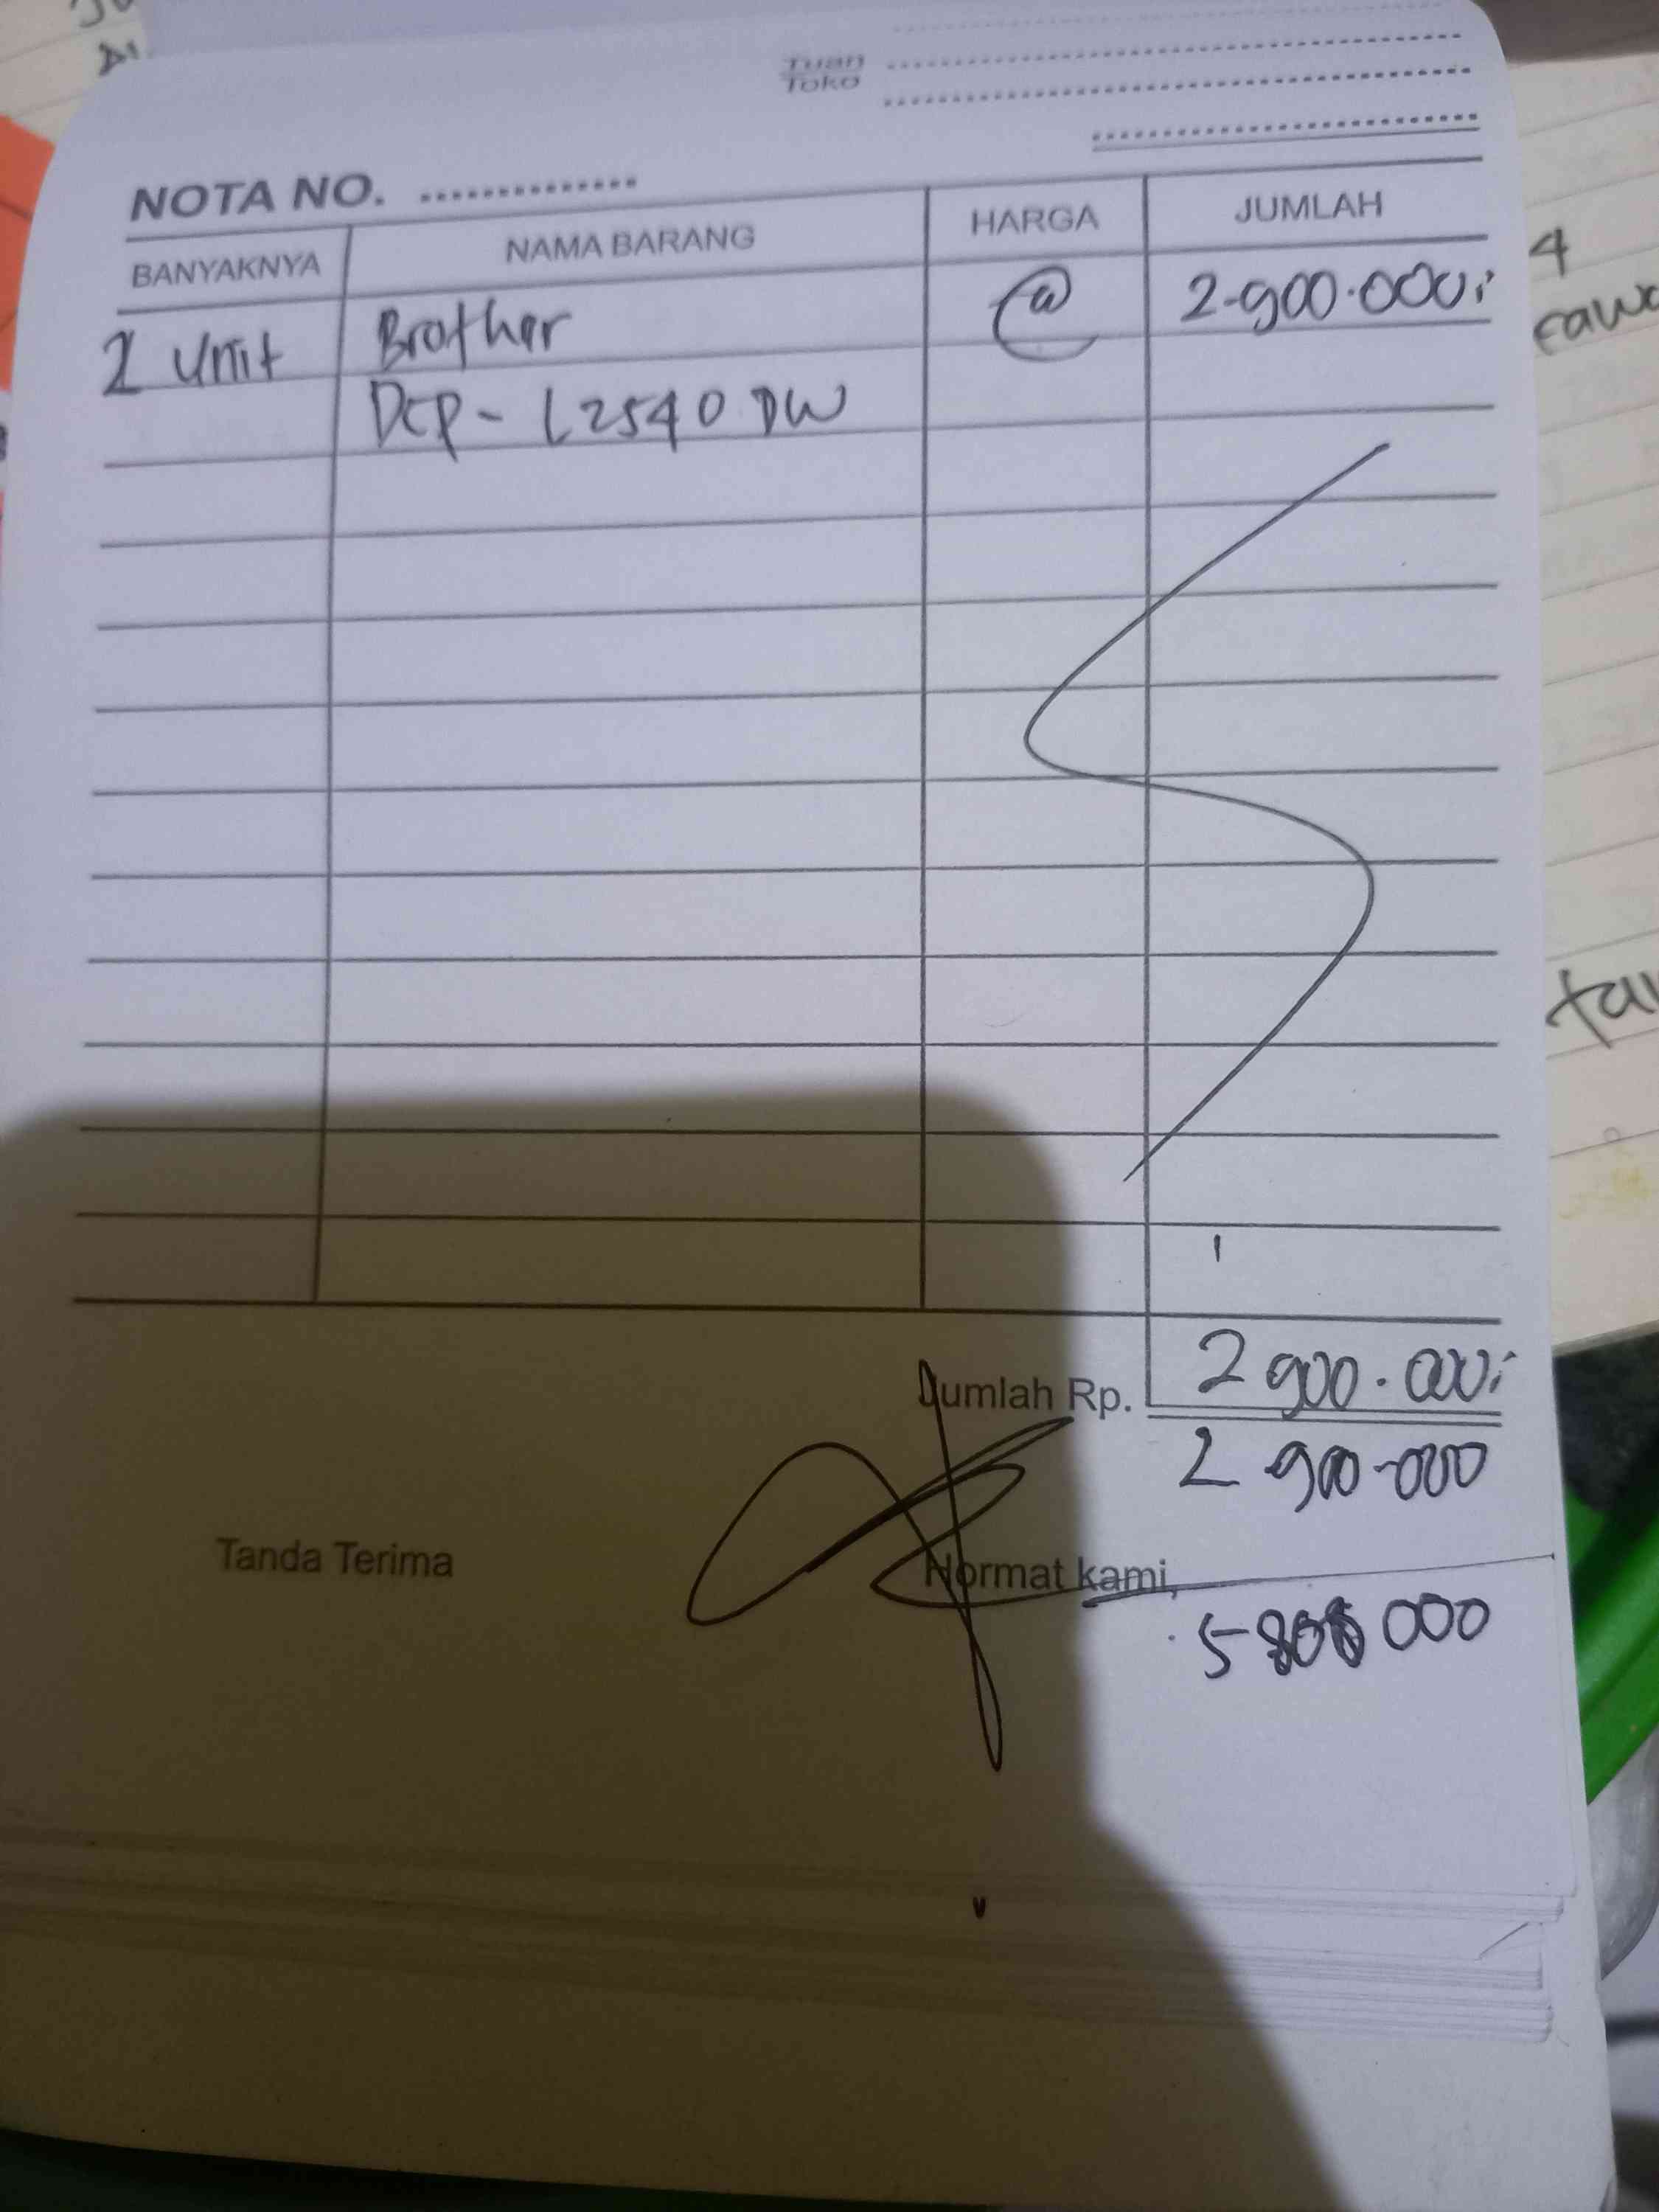 Tuan
Toko
NOTA NO.
BANYAKNYA NAMA BARANG HARGA JUMLAH
2 Unit Brother @ 2.900.000,-
DCP - L2540 DW
Jumlah Rp. 2 900.000,-
2 900-000
Tanda Terima Hormat kami,
5 000
4